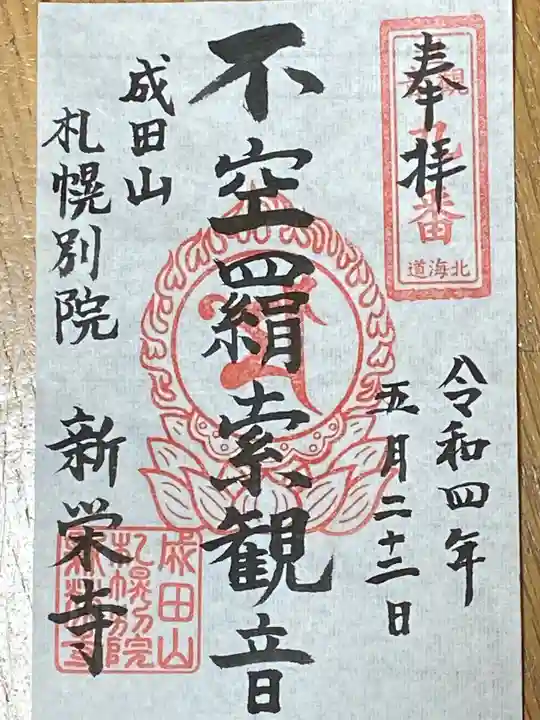 奉拝
番
北海道
令和四年
五月二十二日
不空羂索観音
成田山
札幌別院 新栄寺
成田山
札幌別院